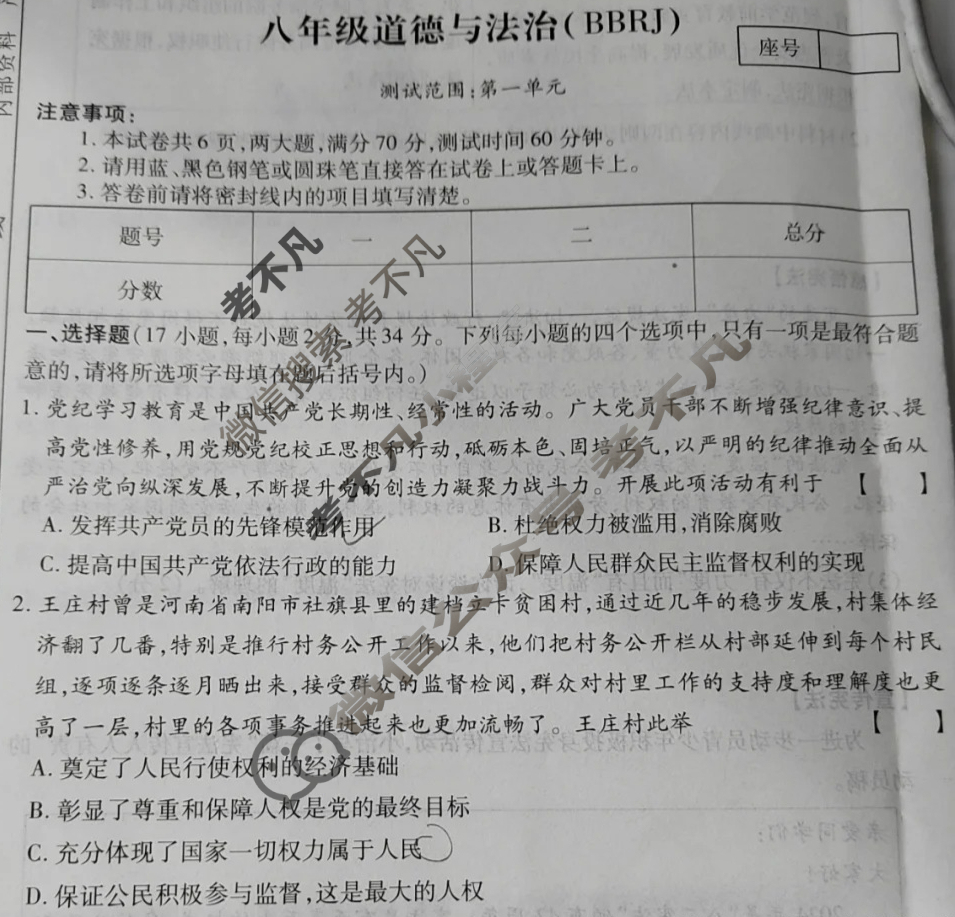 内部资料
八年级道德与法治(BBRJ)
座号
测试范围:第一单元
注意事项:
1. 本试卷共6页,两大题,满分70分,测试时间60分钟。
2. 请用蓝、黑色钢笔或圆珠笔直接答在试卷上或答题卡上。
3. 答卷前请将密封线内的项目填写清楚。
题号 一 二 总分
分数
一、选择题(17小题,每小题2分,共34分。下列每小题的四个选项中,只有一项是最符合题
意的,请将所选项字母填在题后括号内。)
1. 党纪学习教育是中国共产党长期性、经常性的活动。广大党员干部不断增强纪律意识、提
高党性修养,用党规党纪校正思想和行动,砥砺本色、固培正气,以严明的纪律推动全面从
严治党向纵深发展,不断提升党的创造力凝聚力战斗力。开展此项活动有利于 【 】
A. 发挥共产党员的先锋模范作用 B. 杜绝权力被滥用,消除腐败
C. 提高中国共产党依法行政的能力 D. 保障人民群众民主监督权利的实现
2. 王庄村曾是河南省南阳市社旗县里的建档立卡贫困村,通过近几年的稳步发展,村集体经
济翻了几番,特别是推行村务公开工作以来,他们把村务公开栏从村部延伸到每个村民
组,逐项逐条逐月晒出来,接受群众的监督检阅,群众对村里工作的支持度和理解度也更
高了一层,村里的各项事务推进起来也更加流畅了。王庄村此举 【 】
A. 奠定了人民行使权利的经济基础
B. 彰显了尊重和保障人权是党的最终目标
C. 充分体现了国家一切权力属于人民
D. 保证公民积极参与监督,这是最大的人权
微信搜索 考不凡
考不凡小程
微信公众号 考不凡